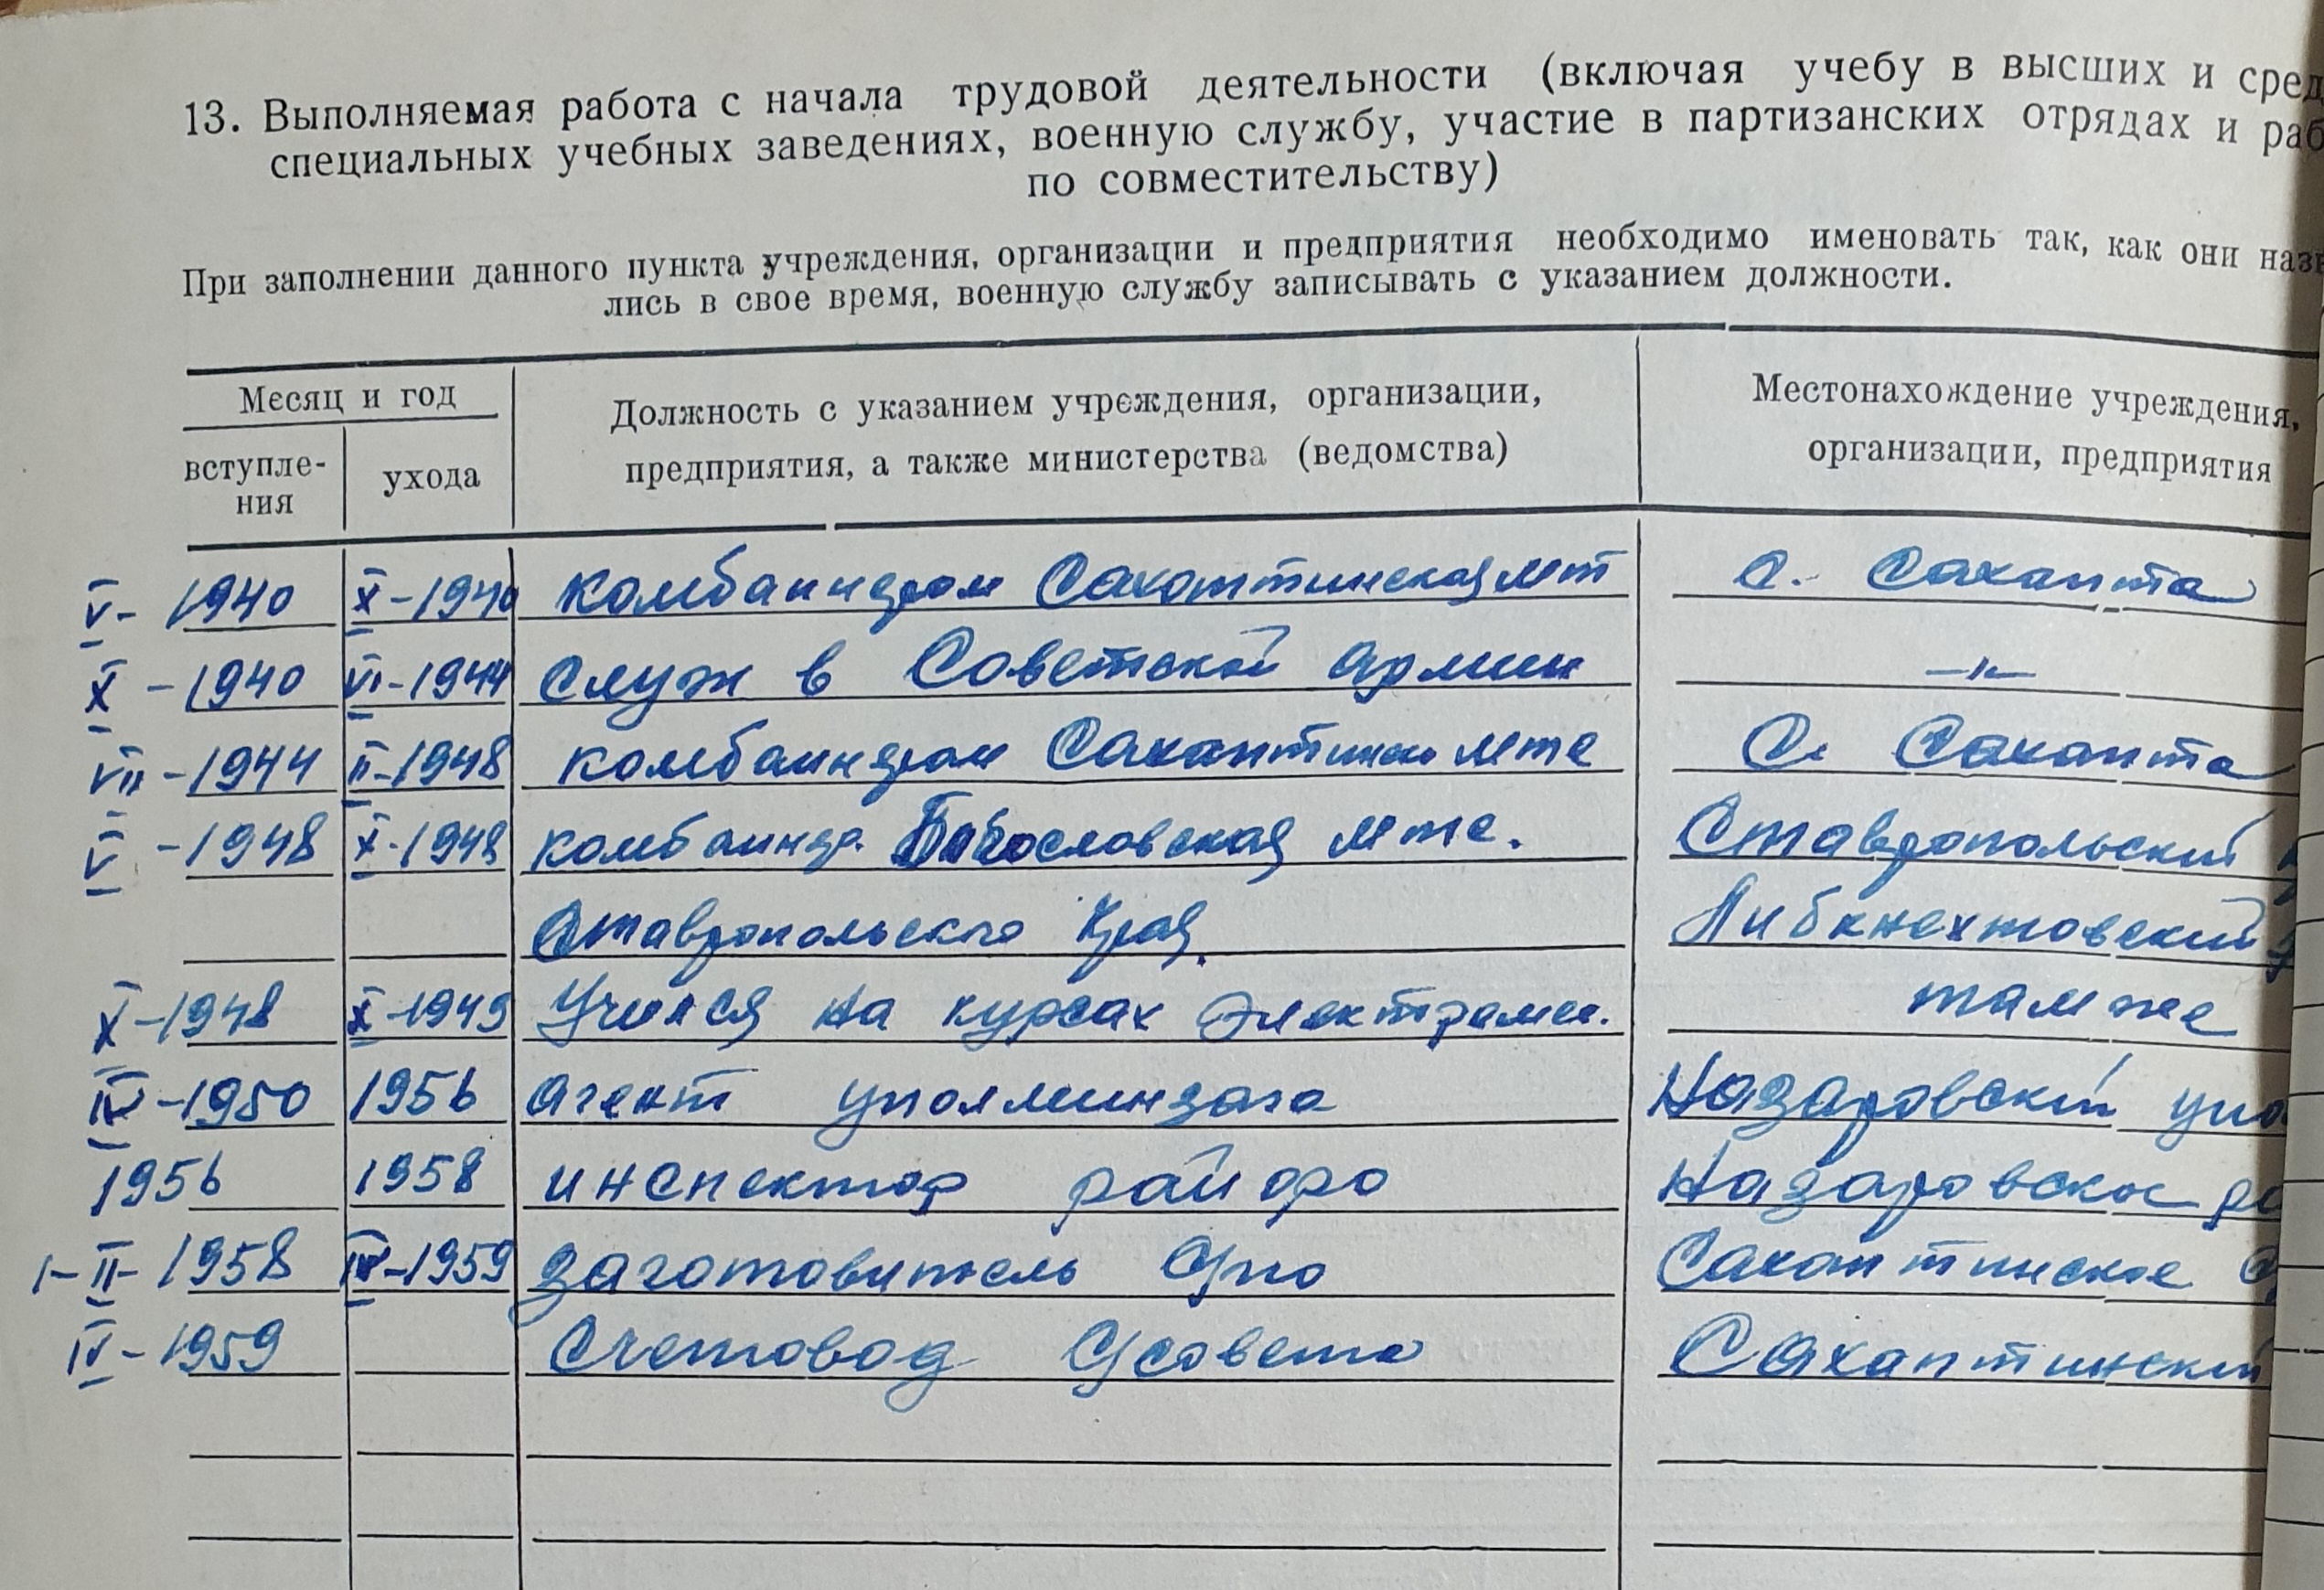 13. Выполняемая работа с начала трудовой деятельности (включая учебу в высших и сред
специальных учебных заведениях, военную службу, участие в партизанских отрядах и раб
по совместительству)
При заполнении данного пункта учреждения, организации и предприятия необходимо именовать так, как они назы
лись в свое время, военную службу записывать с указанием должности.
Месяц и год
вступле-
ния
ухода
Должность с указанием учреждения, организации,
предприятия, а также министерства (ведомства)
Местонахождение учреждения,
организации, предприятия
V- 1940 X-1940 комбаинером Сахаптинская мт С. Сахапта
X -1940 VI-1944 служ в Советской армии -"-
VII -1944 II-1948 комбаинером Сахаптинско мтс С. Сахапта
V -1948 X-1948 комбаинер. Богословская мтс. Ставропольский
Ставропольского Края. Либкнехтовский
X-1948 X-1949 Учился на курсах Электромех. там же
IV-1950 1956 агент уполминзага Назаровский упо
1956 1958 инспектор райфо Назаровское ра
1-II- 1958 IV-1959 заготовитель Сахаптинское
IV-1959 Счетовод С/совета Сахаптинский